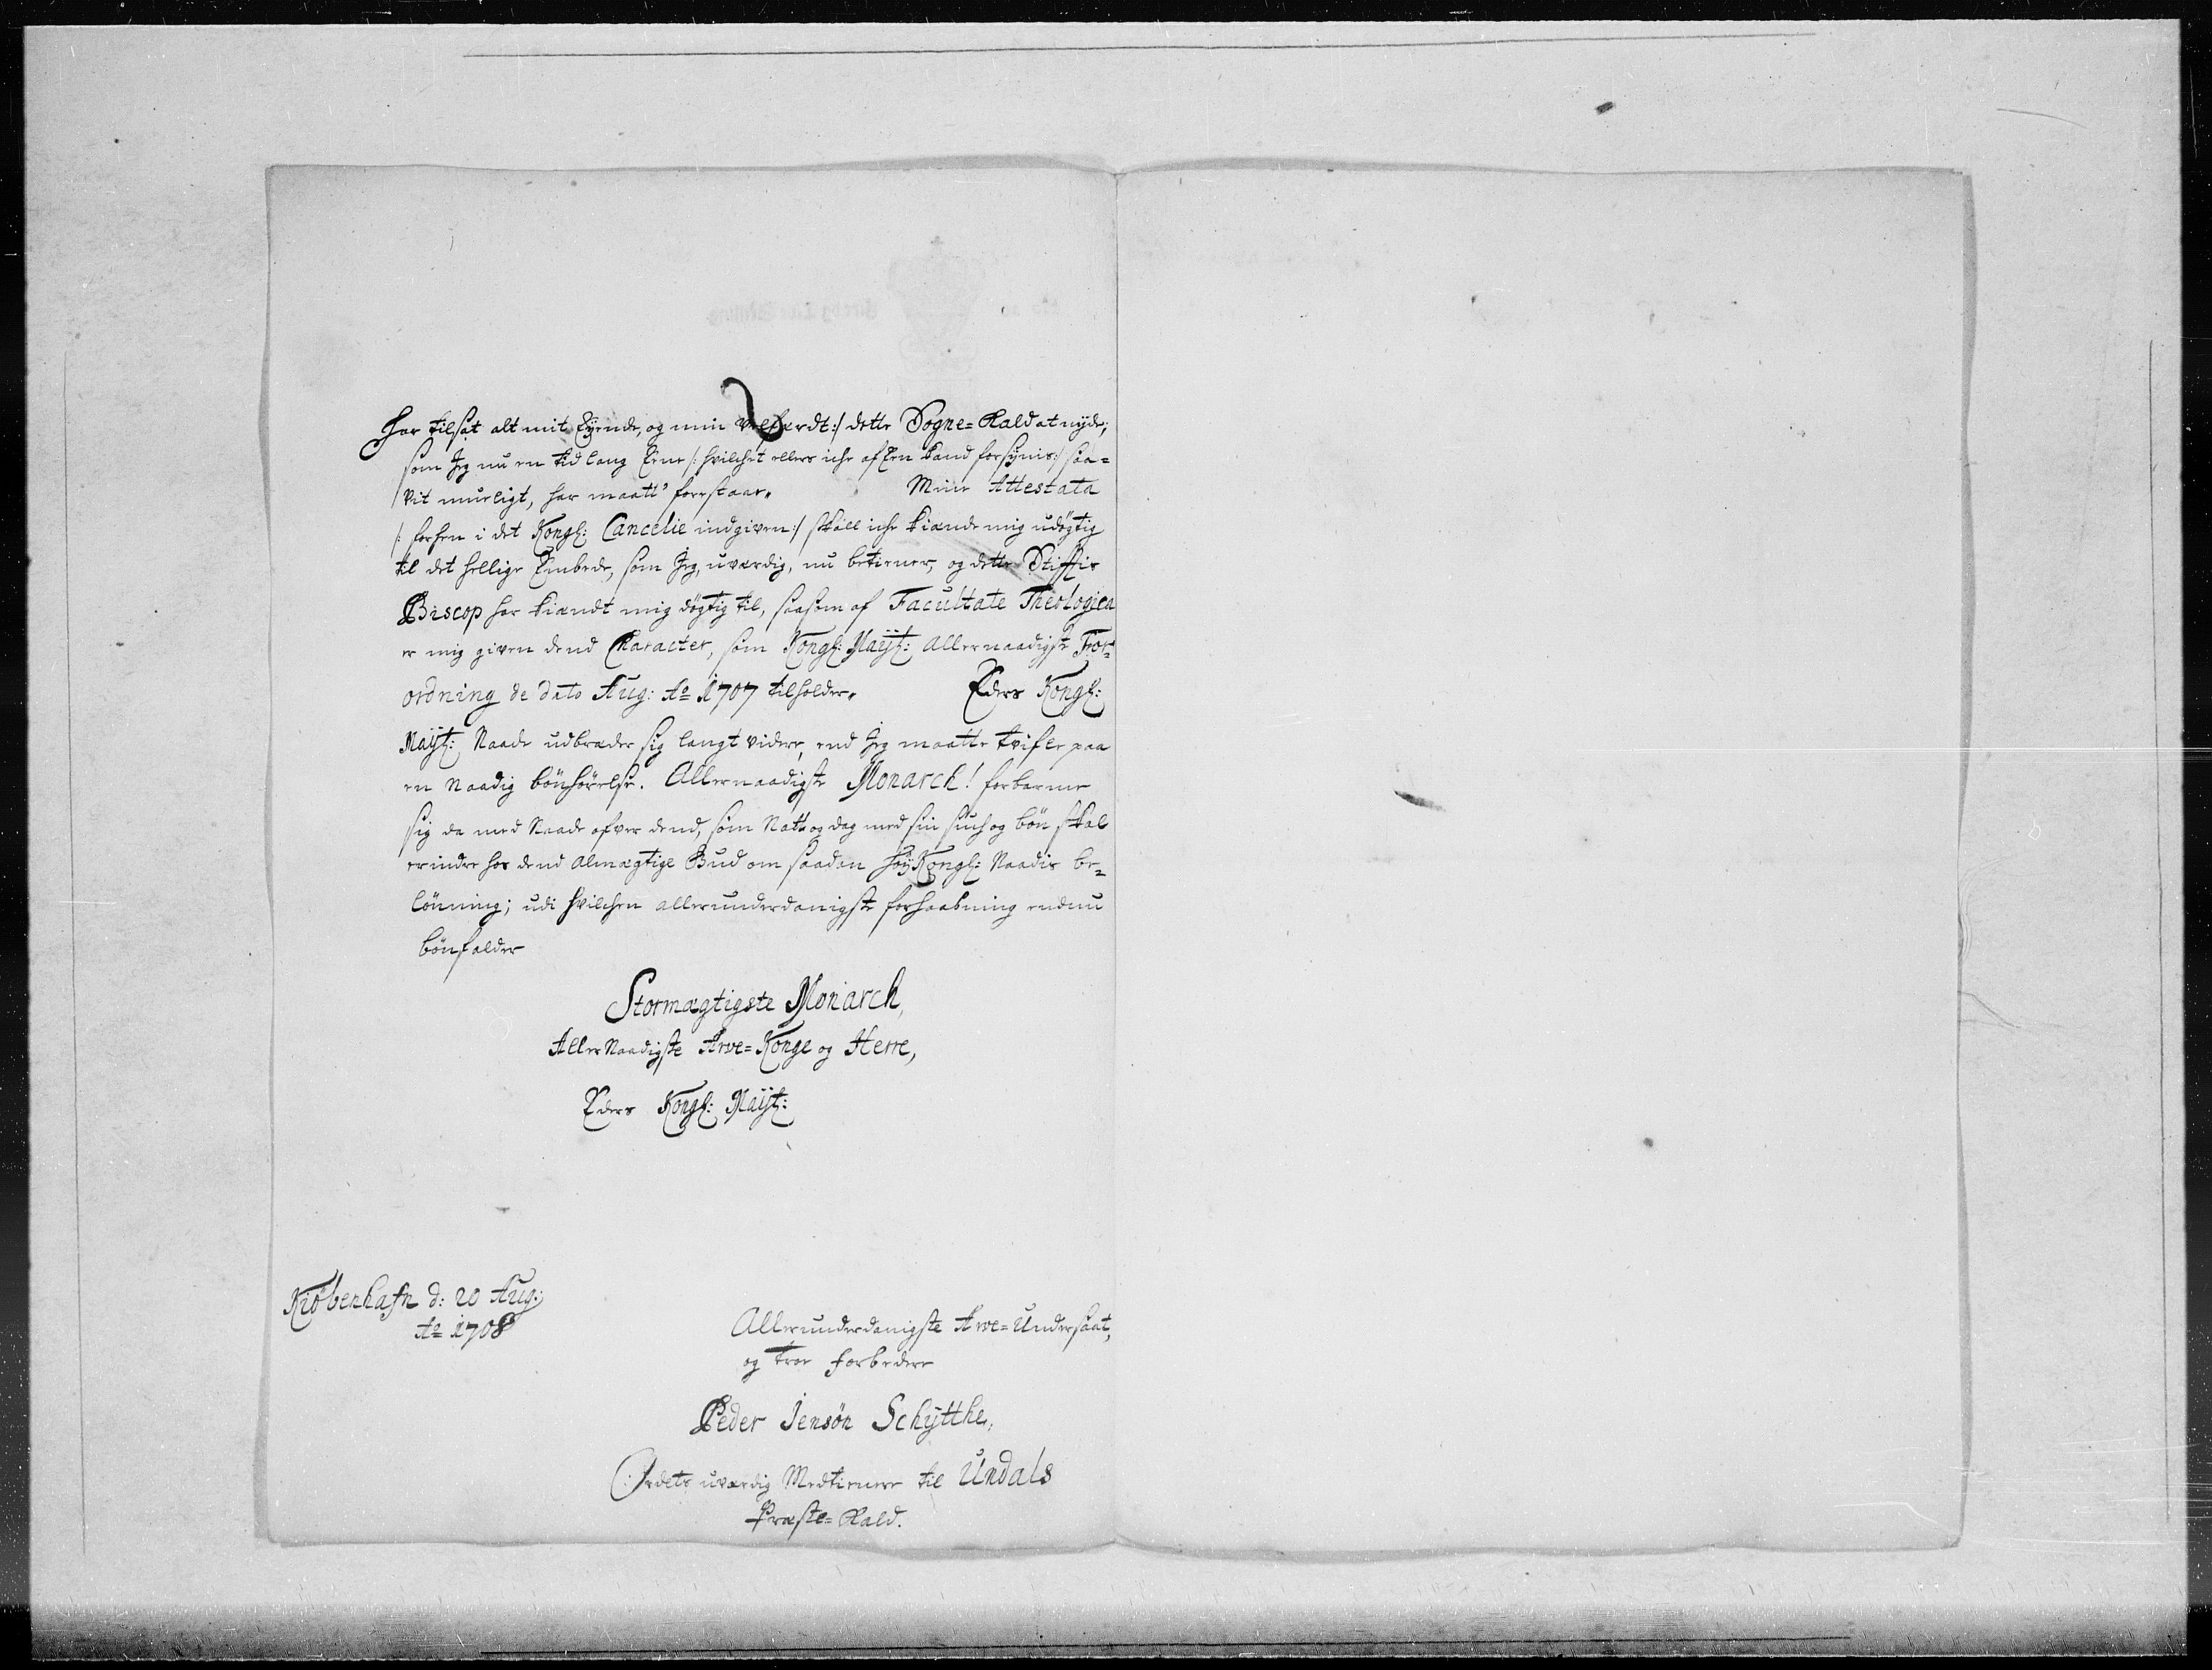 har tilsat alt mit Eyende, og min velfærdt :/ dette Sogne-Kald at nyde;
som Jeg nu en tid lang Eene /: hvilchet ellers iche af Een kand forsynis :/ saa-
vit mueligt, har maatt' forestaae. Mine Attestata
/: forhen i det Kongl: Cancelie indgiven :/ skall iche kiænde mig udøgtig
til det hellige Embede, som Jeg, uværdig, nu betiener, og dette Stiftis
Biscop har kiændt mig døgtig til, saasom af Facultate Theologica
er mig given dend Character, som Kongl: Maijt: allernaadigste For-
ordning de dato Aug: Ao 1707 tilholder. Eders Kongl:
Maijt: Naade udbreder sig langt videre, end Jeg maatte tvifle paa
en Naadig bönhörelse. Allernaadigste Monarch! forbarme
sig da med Naade ofver dend, som Natt og dag med sin such og bön skal
erindre hos dend almægtige Gud om saadan höy Kongl: Naadis be-
lönning; udi hvilchen allerunderdanigste forhaabning endnu
bönfalder
Stormægtigste Monarch,
Aller Naadigste Arve-Konge og Herre,
Eders Kongl: Maijt:
Kiøbenhafn d: 20 Aug:
Ao 1708
Allerunderdanigste Arve-Undersaat,
og troe forbedere
Peder Jensøn Schÿtthe,
Ordets uværdig Medtienere til Undals
Præste-Kald.